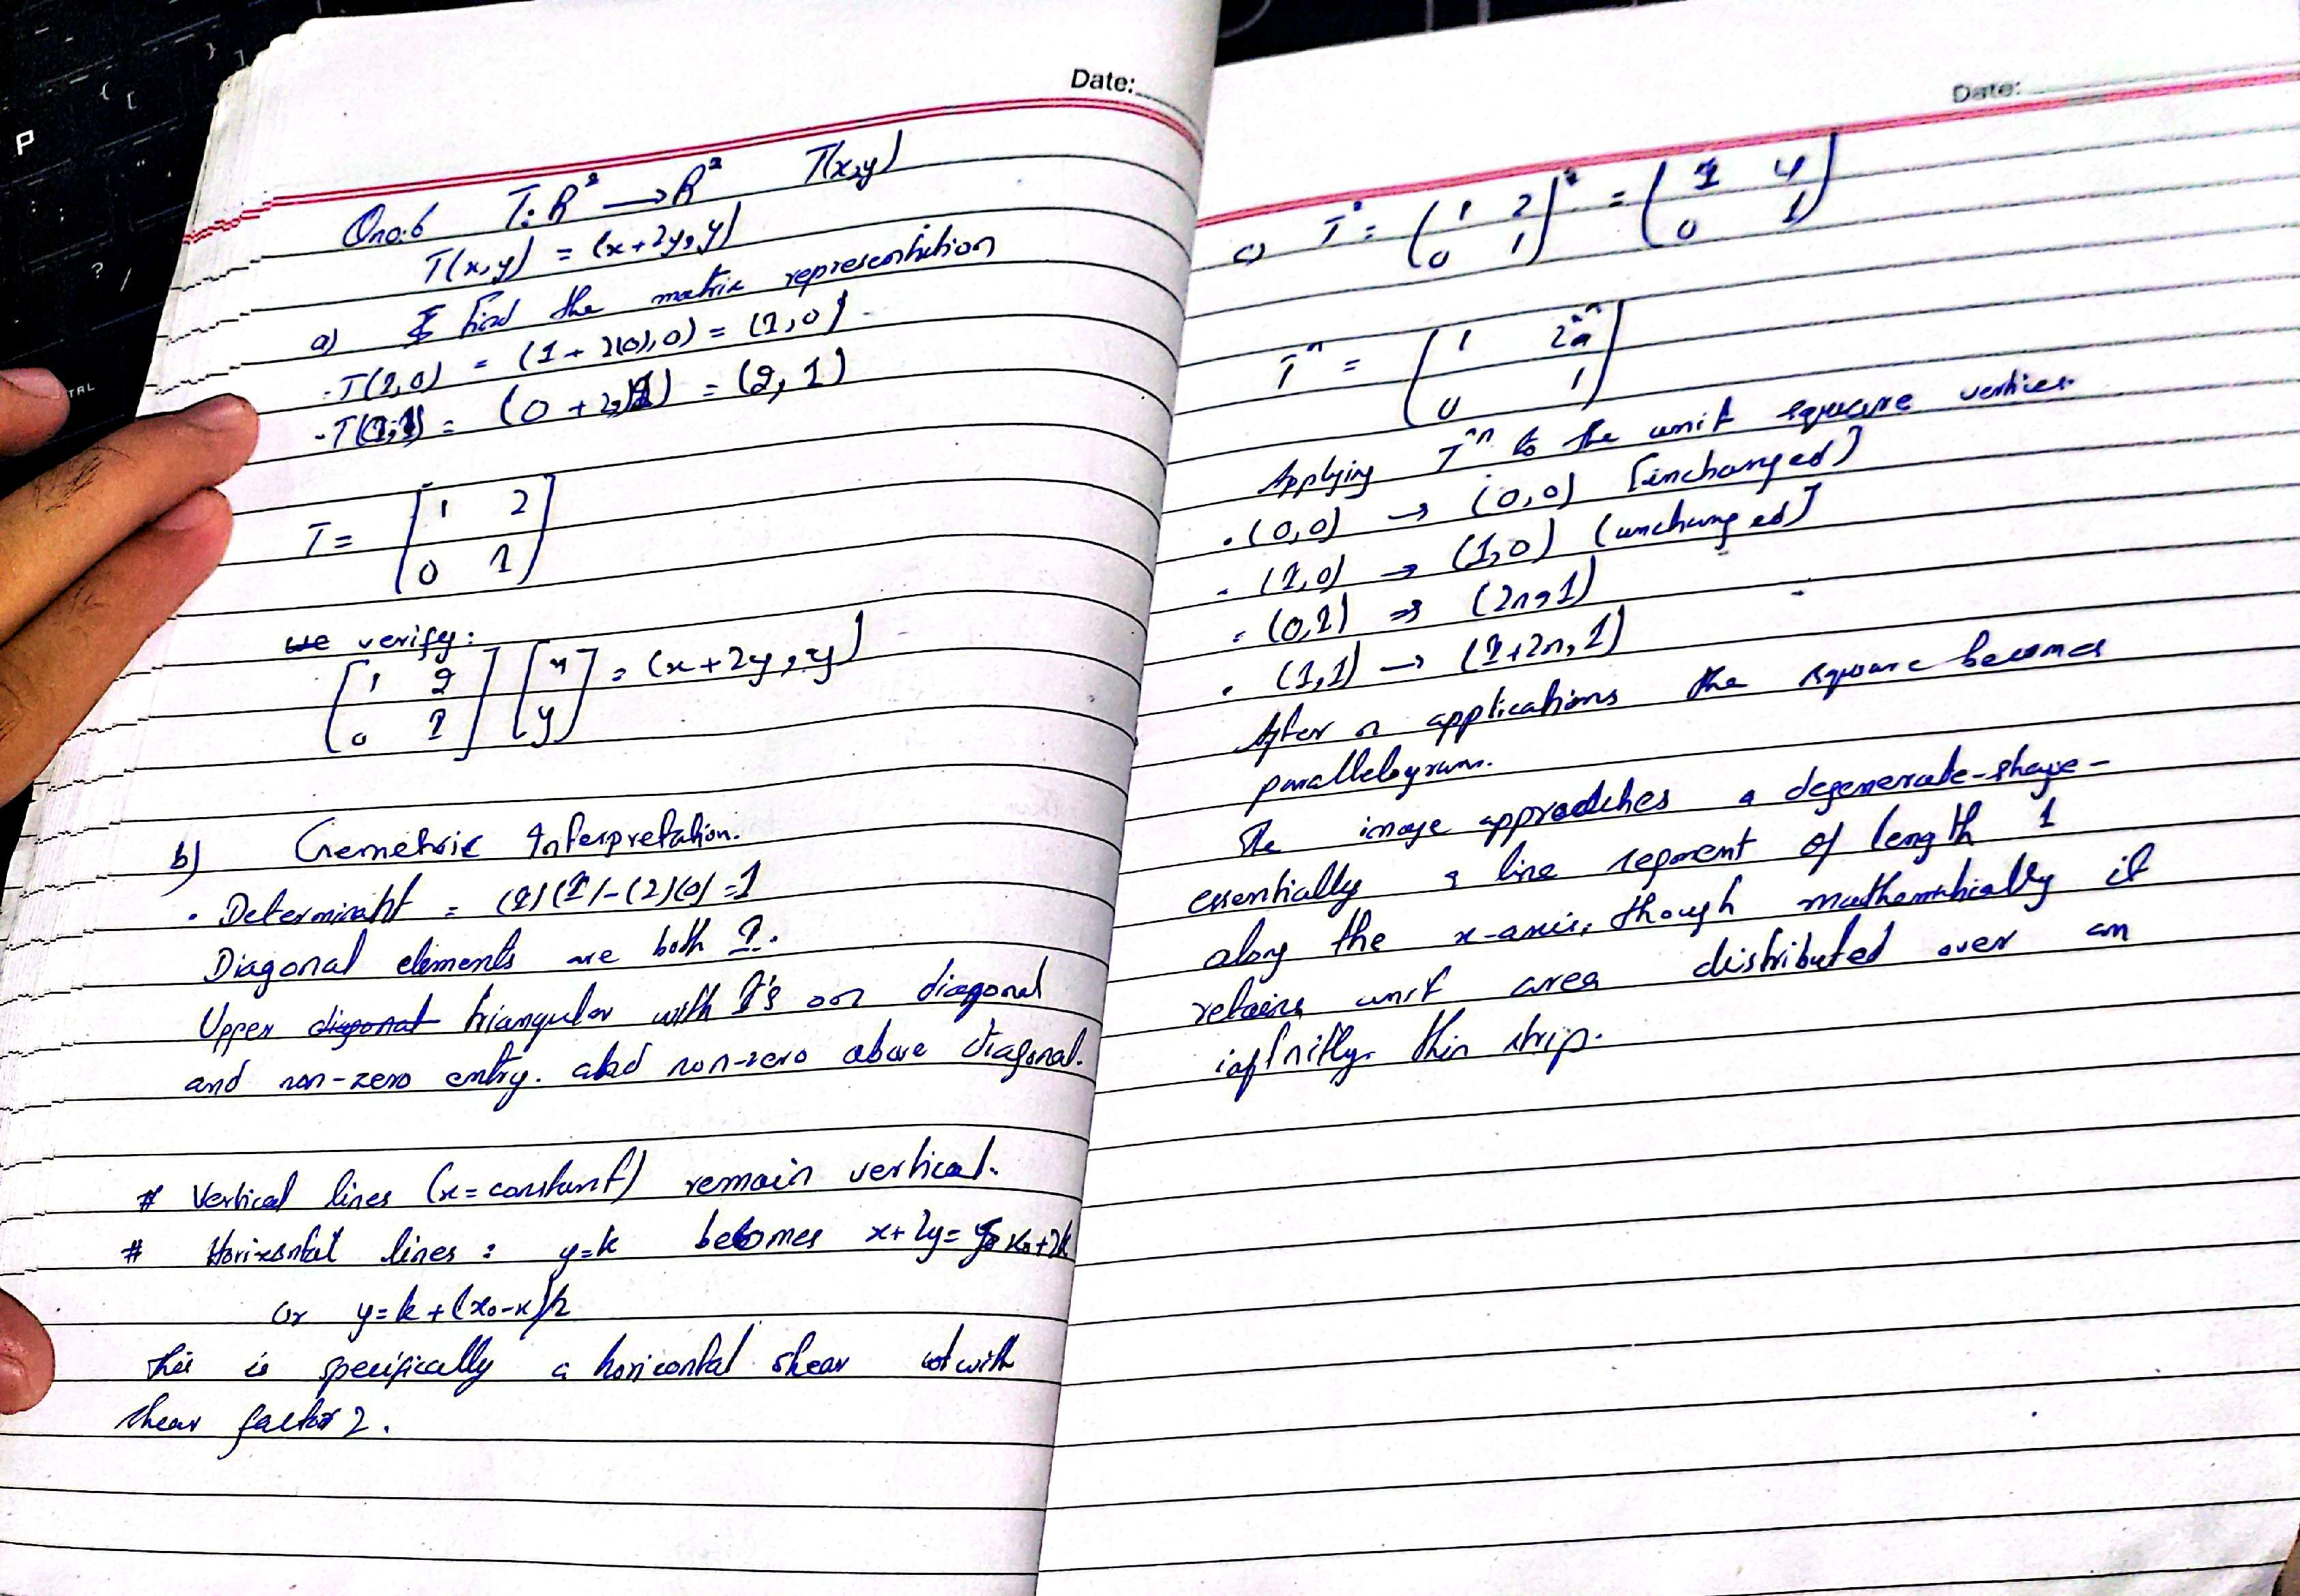 Date:
Qno:6 T: R² → R² T(x,y)
T(x,y) = (x+2y, y)
a) find the matrix representation
· T(1,0) = (1 + 2(0), 0) = (1,0)
- T(0,1) = (0 + 2, 1) = (2, 1)
T = [1 2
0 1]
we verify:
[1 2 [x = (x+2y, y)
0 1] y]
b) Geometric Interpretation.
· Determinant = (1)(1)-(2)(0) = 1
Diagonal elements are both 1.
Upper diagonal triangular with 1's on diagonal
and non-zero entry. and non-zero above diagonal.
# Vertical lines (x = constant) remain vertical.
# Horizontal lines : y=k becomes x+2y = x₀+2k
or y = k + (x₀-x)/2
this is specifically a horizontal shear with
shear factor 2.
Date:
c) T² = (1 2 )² = (1 4
0 1) 0 1)
Tⁿ = (1 2n
0 1)
Applying Tⁿ to the unit square vertices
· (0,0) → (0,0) [unchanged]
- (1,0) → (1,0) (unchanged]
· (0,1) → (2n,1)
· (1,1) → (1+2n,1)
After n applications the square becomes
parallelogram.
The image approaches a degenerate-shape-
essentially a line segment of length 1
along the x-axis, though mathematically it
retains unit area distributed over an
infinitly thin strip.
P
?
/
CTRL